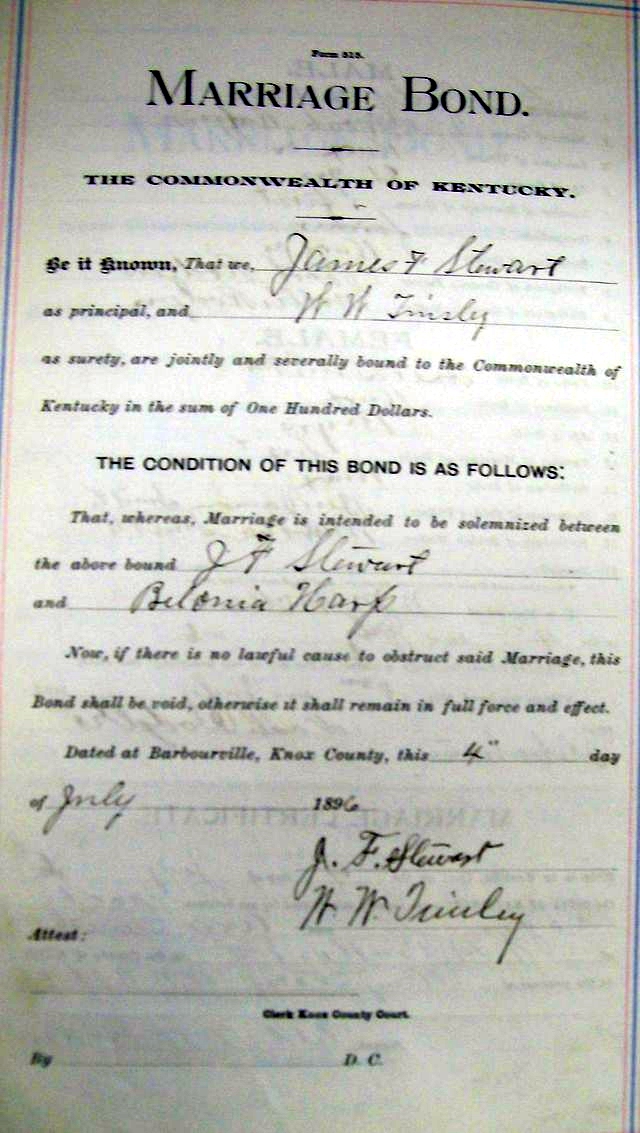 Form 313.
MARRIAGE BOND.
THE COMMONWEALTH OF KENTUCKY.
Be it Known, That we, James F Stewart
as principal, and W W Tinsley
as surety, are jointly and severally bound to the Commonwealth of
Kentucky in the sum of One Hundred Dollars.
THE CONDITION OF THIS BOND IS AS FOLLOWS:
That, whereas, Marriage is intended to be solemnized between
the above bound J F Stewart
and Belonia Harp
Now, if there is no lawful cause to obstruct said Marriage, this
Bond shall be void, otherwise it shall remain in full force and effect.
Dated at Barbourville, Knox County, this 4" day
of July 1896
J. F. Stewart
W W Tinsley
Attest:
Clerk Knox County Court.
By D. C.